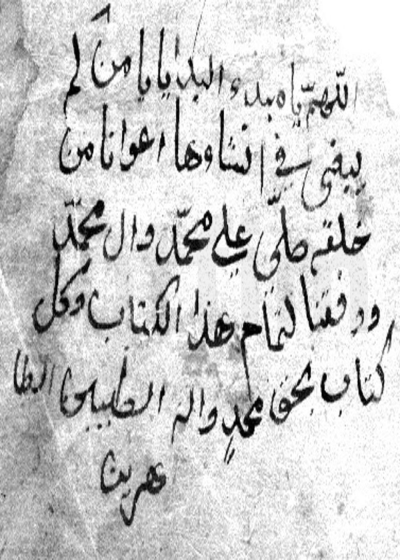 اللهمّ يا مبدء البدايا يا من لم
يبغى في انشاوها اعوانا من
خلقه صلّي علي محمّد وال محمّد
ووفقنا لتمام هذا الكتاب وكل
كتاب بحق محمدٍ واله الطيبين الطا
هرين